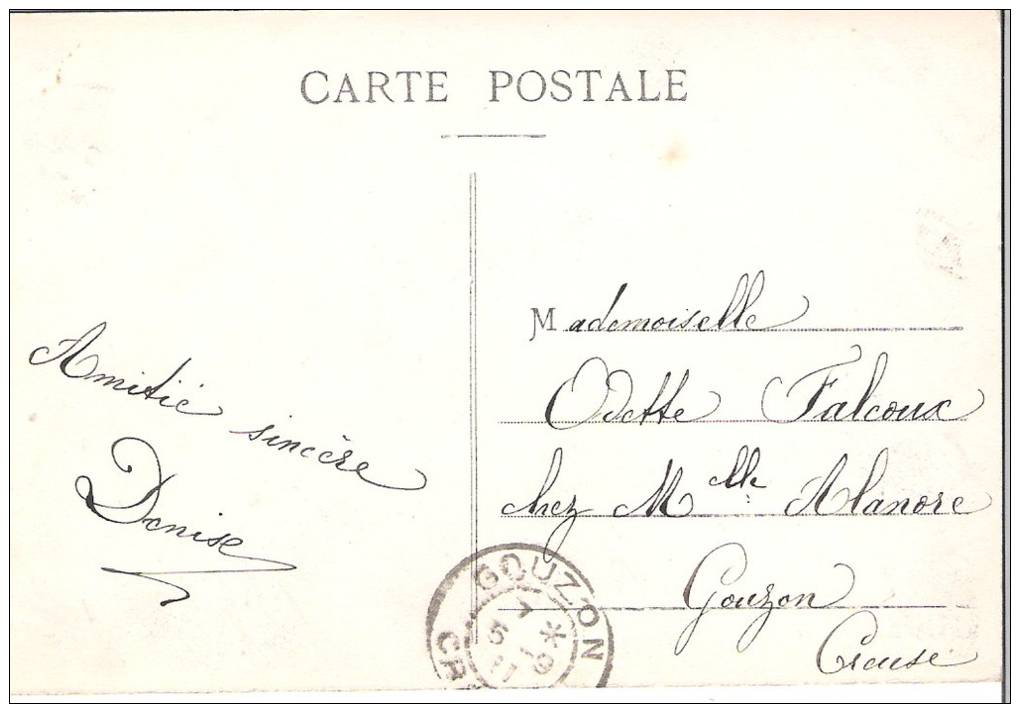 CARTE POSTALE
Amitié sincère
Denise
Mademoiselle
Odette Falcoux
chez Melle Alanore
Gouzon
Creuse
GOUZON